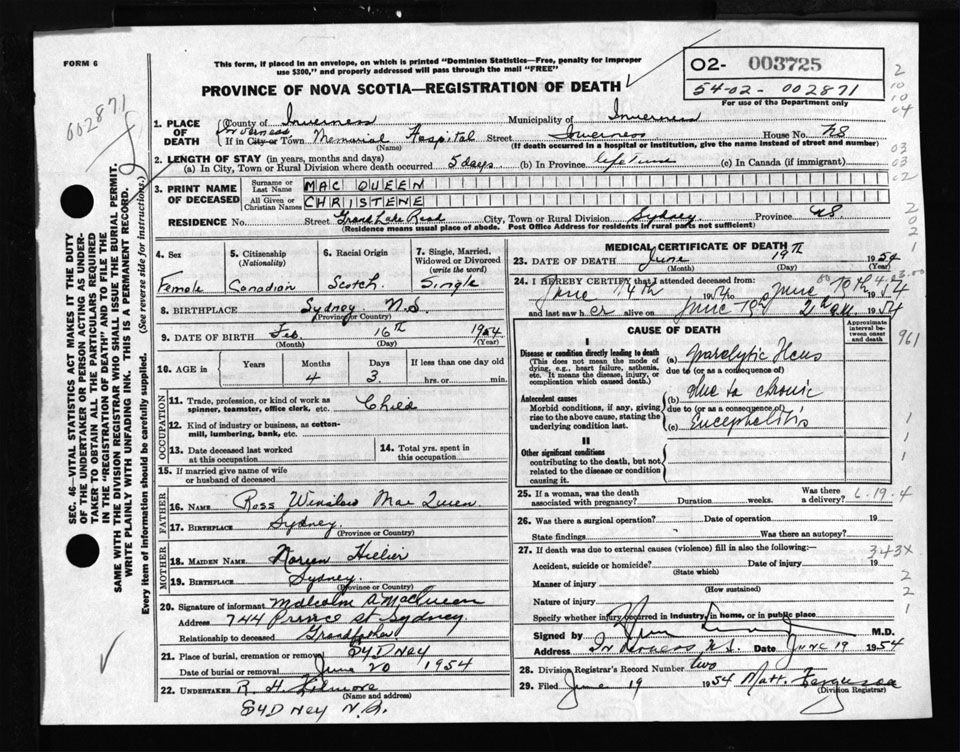 FORM 6
This form, if placed in an envelope, on which is printed "Dominion Statistics—Free, penalty for improper
use $300," and properly addressed will pass through the mail "FREE"
PROVINCE OF NOVA SCOTIA—REGISTRATION OF DEATH
O2- 003725
54-02- 002871
For use of the Department only
002871
1. PLACE OF DEATH
County of Inverness Municipality of Inverness
If in City or Town Inverness Memorial Hospital Street Inverness House No. NS
(Name) (If death occurred in a hospital or institution, give the name instead of street and number)
2. LENGTH OF STAY (in years, months and days)
(a) In City, Town or Rural Division where death occurred 5 days (b) In Province life time (c) In Canada (if immigrant)
3. PRINT NAME OF DECEASED
Surname or Last Name MAC QUEEN
All Given or Christian Names CHRISTENE
RESIDENCE No. Street Grand Lake Road City, Town or Rural Division Sydney Province NS
(Residence means usual place of abode. Post Office Address for residents in rural parts not sufficient)
4. Sex Female
5. Citizenship (Nationality) Canadian
6. Racial Origin Scotch
7. Single, Married, Widowed or Divorced (write the word) Single
8. BIRTHPLACE Sydney N.S.
(Province or Country)
9. DATE OF BIRTH Feb. 16th 1954
(Month) (Day) (Year)
10. AGE in Years Months 4 Days 3 If less than one day old hrs. or min.
OCCUPATION
11. Trade, profession, or kind of work as spinner, teamster, office clerk, etc. Child
12. Kind of industry or business, as cotton-mill, lumbering, bank, etc.
13. Date deceased last worked at this occupation
14. Total yrs. spent in this occupation
15. If married give name of wife or husband of deceased
FATHER
16. NAME Ross Winslow Mac Queen
17. BIRTHPLACE Sydney
(Province or Country)
MOTHER
18. MAIDEN NAME Hillier
19. BIRTHPLACE Sydney
(Province or Country)
20. Signature of informant Malcolm D MacQueen
Address 744 Prince St Sydney
Relationship to deceased Grandfather
21. Place of burial, cremation or removal SYDNey
Date of burial or removal June 20 1954
22. UNDERTAKER R. H.
(Name and address)
SYDNey N.S.
MEDICAL CERTIFICATE OF DEATH
23. DATE OF DEATH June 19th 1954
(Month) (Day) (Year)
24. I HEREBY CERTIFY that I attended deceased from:
June 14th
and last saw her alive on June 1954
CAUSE OF DEATH
Approximate interval between onset and death
I
Disease or condition directly leading to death (a) Paralytic Ileus
(This does not mean the mode of dying, e.g., heart failure, asthenia, etc. It means the disease, injury, or complication which caused death.)
due to (or as a consequence of)
Antecedent causes (b) due to chronic
Morbid conditions, if any, giving rise to the above cause, stating the underlying condition last.
due to (or as a consequence of)
(c) Encephalitis
II
Other significant conditions
contributing to the death, but not related to the disease or condition causing it.
25. If a woman, was the death associated with pregnancy? Duration weeks. Was there a delivery?
26. Was there a surgical operation? Date of operation 19
State findings Was there an autopsy?
27. If death was due to external causes (violence) fill in also the following:—
Accident, suicide or homicide? Date of injury 19
(State which)
Manner of injury
(How sustained)
Nature of injury
Specify whether injury occurred in industry, in home, or in public place
Signed by M.D.
Address Inverness N.S. Date June 19 1954
28. Division Registrar's Record Number two
29. Filed June 19 1954 Matt. Ferguson
(Division Registrar)
961
6.19.4
343X
SEC. 46—VITAL STATISTICS ACT MAKES IT THE DUTY
OF THE UNDERTAKER OR PERSON ACTING AS UNDER-
TAKER TO OBTAIN ALL THE PARTICULARS REQUIRED
IN THE "REGISTRATION OF DEATH" AND TO FILE THE
SAME WITH THE DIVISION REGISTRAR WHO SHALL ISSUE THE BURIAL PERMIT.
WRITE PLAINLY WITH UNFADING INK. THIS IS A PERMANENT RECORD.
Every item of information should be carefully supplied. (See reverse side for instructions.)